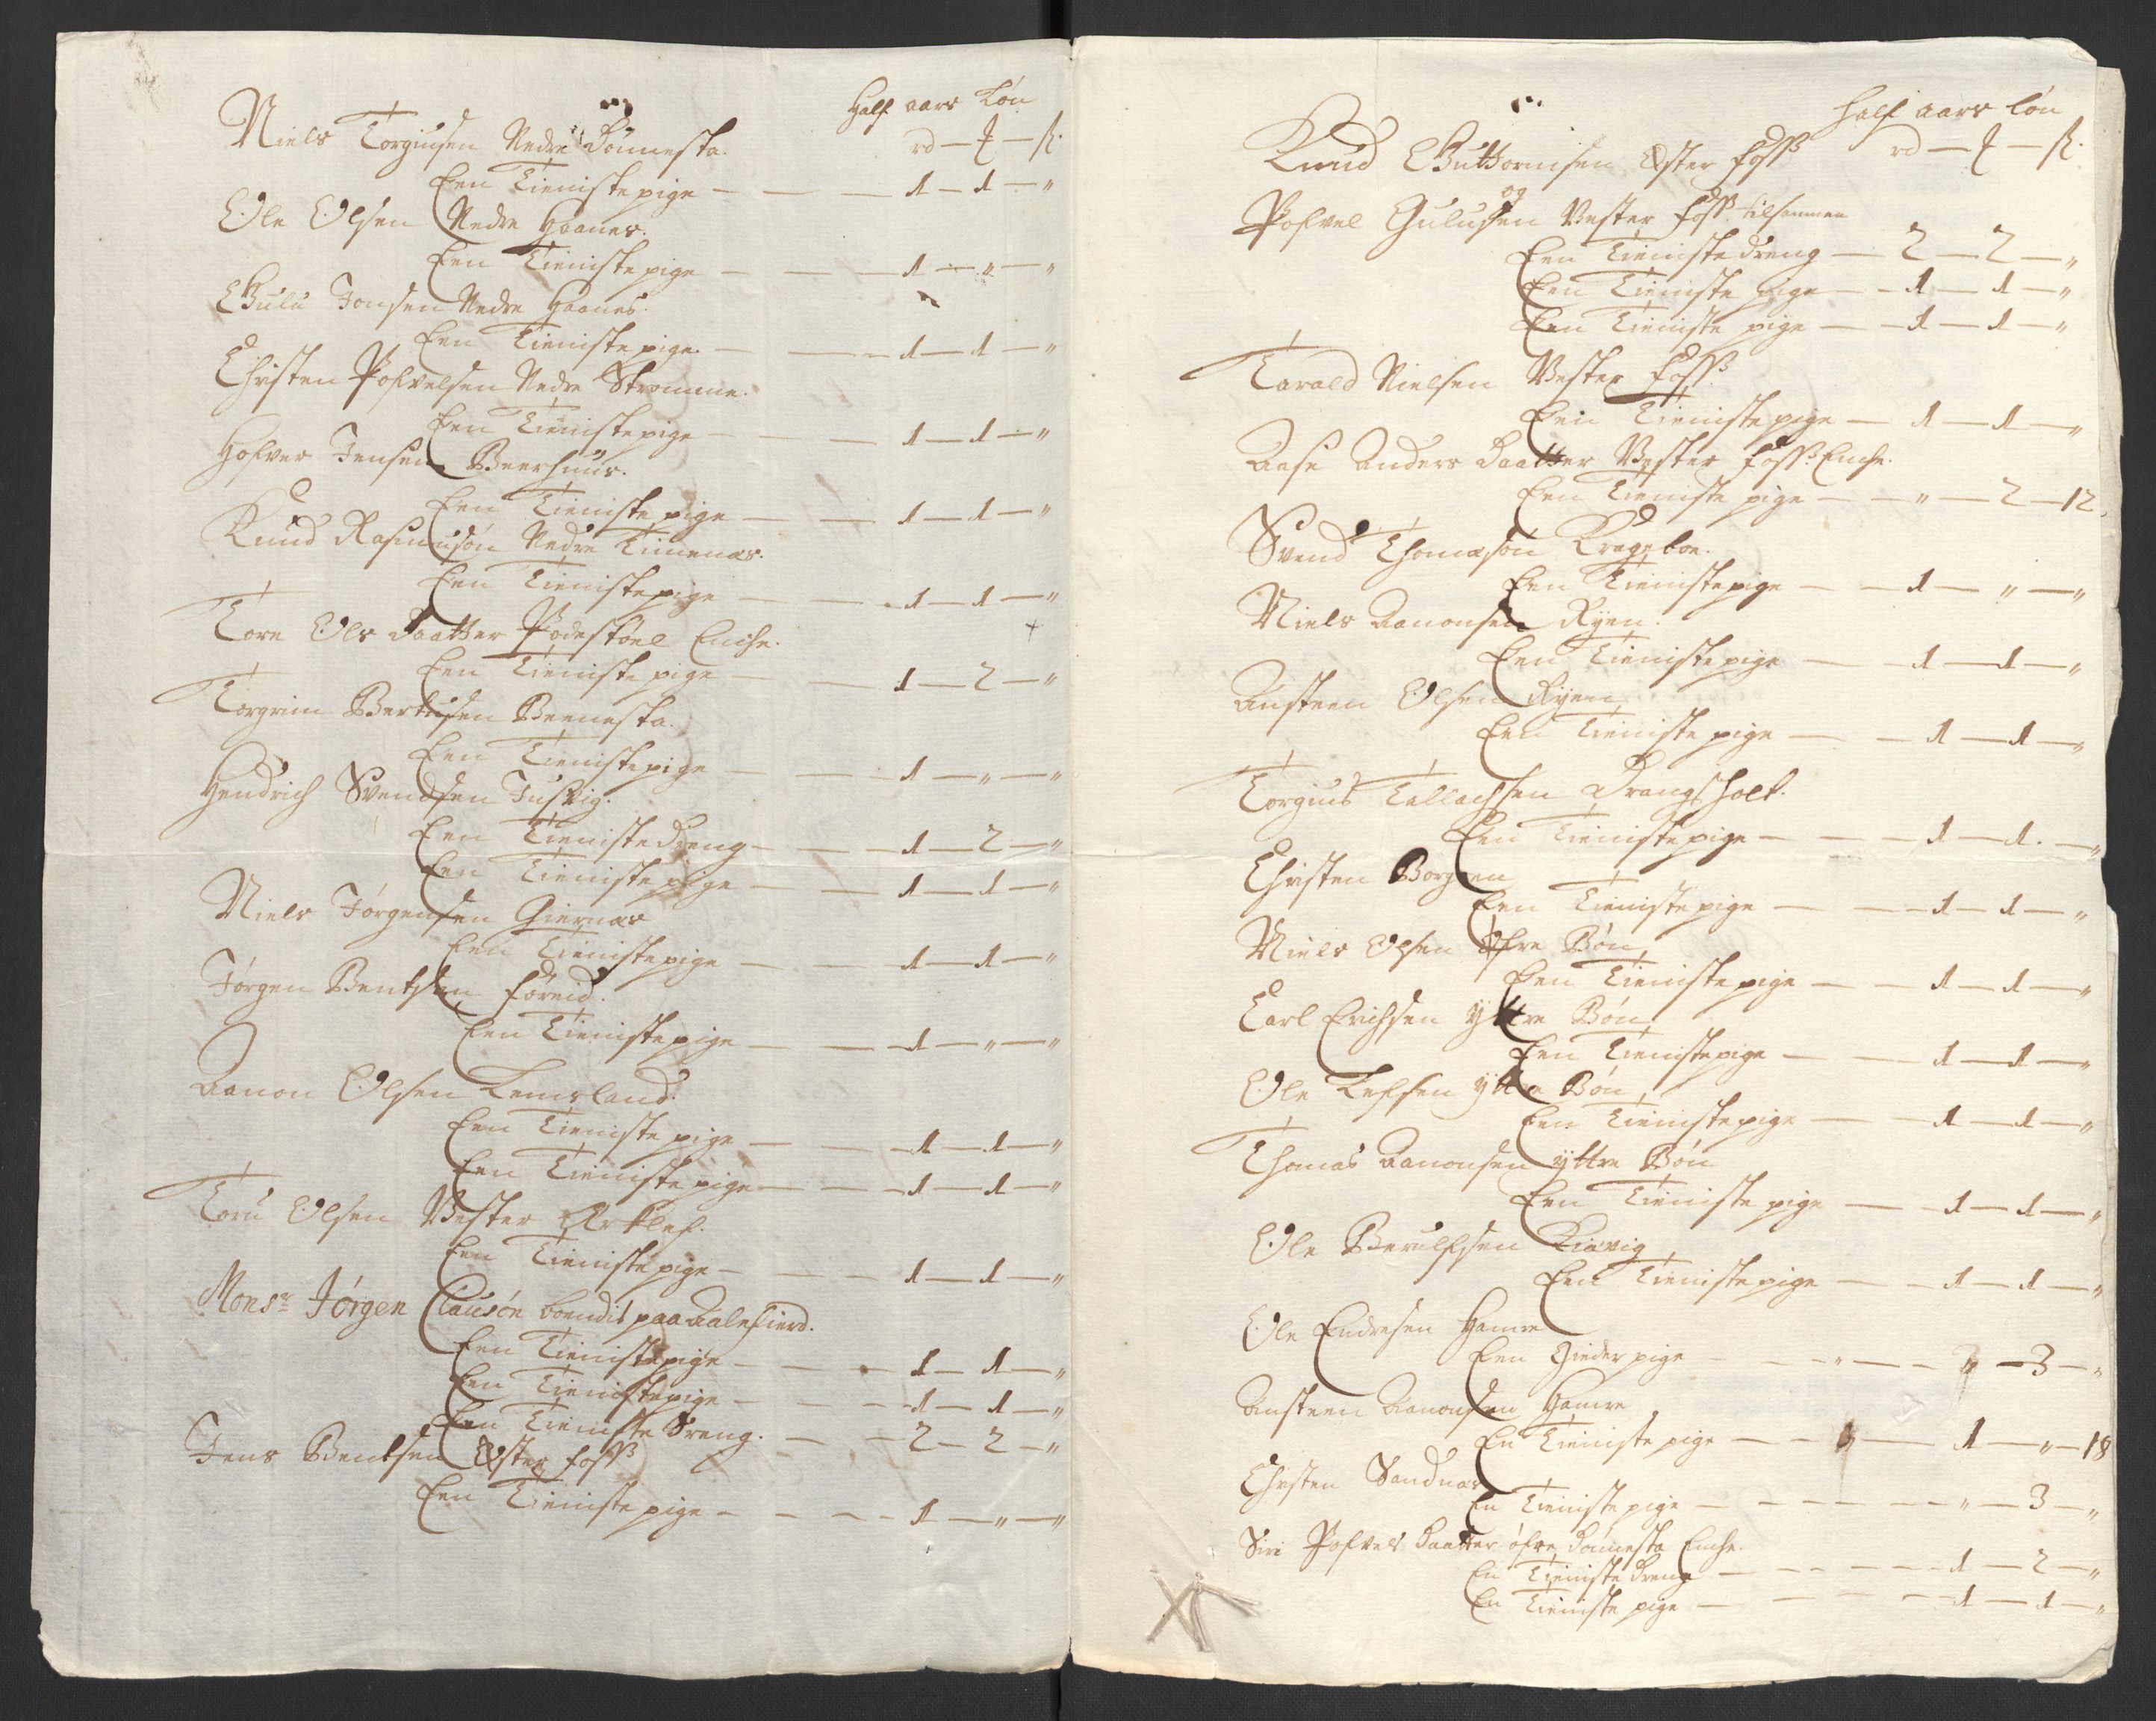 Half aars Løn
Niels Torgiusen Nedre Dønnesta. rd — ₰ — ß.
Een Tieniste pige — 1 — 1 — "
Ole Olsen Nedre Haanes.
Een Tieniste pige — 1 — " — "
Gulu Jonsen Nedre Haanes.
Een Tieniste pige — 1 — 1 — "
Christen Pofvelsen Nedre Strømme.
Een Tieniste pige — 1 — 1 — "
Hofver Jensen Beerhuus.
Een Tieniste pige — 1 — 1 — "
Knud Rasmusøn Nedre Timenæs.
Een Tieniste pige — 1 — 1 — "
Tore Ols Daatter Enche.
Een Tieniste pige — 1 — 2 — "
Torgrim Bertelsen Beenesta.
Een Tieniste pige — 1 — " — "
Hendrich Svendsen Justvig.
Een Tieniste dreng — 1 — 2 — "
Een Tieniste pige — 1 — 1 — "
Niels Jørgensen Giernæs
Een Tieniste pige — 1 — 1 — "
Jørgen Bentsen Føreid.
Een Tieniste pige — 1 — " — "
Aanon Olsen Lemsland.
Een Tieniste pige — 1 — 1 — "
Een Tieniste pige — 1 — 1 — "
Toru Olsen Vester
Een Tieniste pige — 1 — 1 — "
Monsr Jørgen Clausøn boendis paa Aalefierd.
Een Tieniste pige — 1 — 1 — "
Een Tieniste pige — 1 — 1 — "
Een Tieniste Dreng. — 2 — 2 — "
Jens Bentsen Øster Foss
Een Tieniste pige — 1 — " — "
Half aars Løn
Knud Guttormsen Øster Foss rd — ₰ — ß.
og
Pofvel Gulusen Vester Foss. tilsammen
Een Tieniste dreng — 2 — 2 — "
Een Tieniste pige — 1 — 1 — "
Een Tieniste pige — 1 — 1 — "
Tarald Nielsen Vester Foss.
Een Tieniste pige — 1 — 1 — "
Aase Anders Daatter Vester Foss. Enche.
Een Tieniste pige — " — 2 — 12.
Svend Thomasøn Krageboe.
Een Tieniste pige — 1 — " — "
Niels Aanonsen Ryen.
Een Tieniste pige — 1 — 1 — "
Austeen Olsen Ryen
Een Tieniste pige — 1 — 1 — "
Torgius Tallachsen Drangsholt.
Een Tieniste pige — 1 — 1. — "
Christen Borgen
Een Tieniste pige — 1 — 1 — "
Niels Olsen Øfre Bøn
Een Tieniste pige — 1 — 1 — "
Carl Erichsen yttre Bøn
Een Tieniste pige — 1 — 1 — "
Ole Lefsen yttre Bøn
Een Tieniste pige — 1 — 1 — "
Thomas Aanonsen yttre Bøn
Een Tieniste pige — 1 — 1 — "
Ole Berulfsen Kiævig
Een Tieniste pige — 1 — 1 — "
Ole Endresen Hamre
Een Gieder pige — " — 3 — "
Austeen Aanonsen Hamre
En Tieniste pige — 1 — " — 18
Christen Sandnæs
En Tieniste pige — " — 3 — "
Siri Pofvels Daatter øfre Dønnesta Enche.
En Tieniste Dreng — 1 — 2 — "
En Tieniste pige — 1 — 1 — "